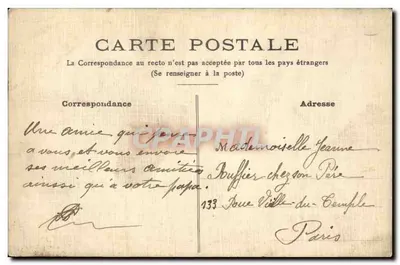 CARTE POSTALE
La Correspondance au recto n'est pas acceptée par tous les pays étrangers
(Se renseigner à la poste)
Correspondance
Adresse
Une amie qui pense
a vous, et vous envoie
ses meilleurs amitiés
aussi qu a votre papa.
Mademoiselle Jeanne
Bouffier chez son Père
133 Vieille du Temple
Paris
CPAPHIL